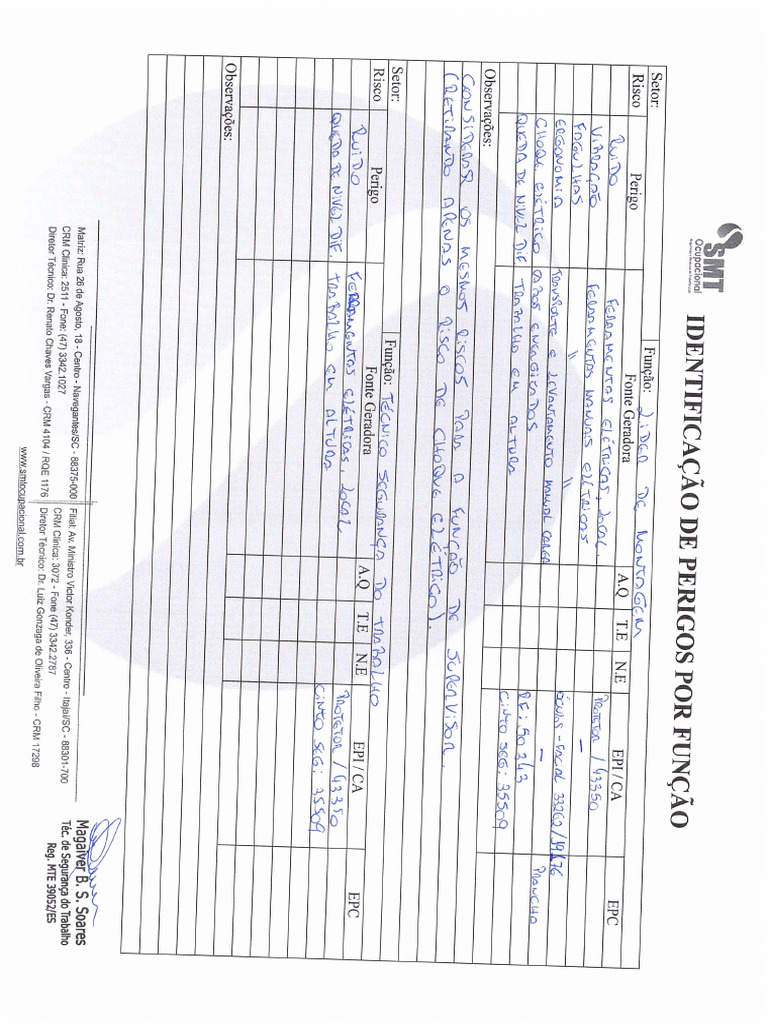 SMT
Ocupacional
IDENTIFICAÇÃO DE PERIGOS POR FUNÇÃO
Setor: Função: LIDER DE MONTAGEM
Risco Perigo Fonte Geradora A.Q T.E N.E EPI / CA EPC
RUIDO FERRAMENTAS ELÉTRICAS, LOCAL. PROTETOR / 43350
VIBRAÇÃO FERRAMENTAS MANUAIS ELÉTRICAS –
FAGULHAS " " ÓCULOS - FACIAL 33262/
ERGONOMIA TRANSPORTE E LEVANTAMENTO MANUAL CARGA – PRANCHA
CHOQUE ELÉTRICO CABOS ENERGIZADOS RF: 50343
QUEDA DE NIVEL DIF. TRABALHO EM ALTURA CINTO SEG: 35509
Observações:
CONSIDERAR OS MESMOS RISCOS PARA A FUNÇÃO DE SUPERVISOR.
(RETIRANDO APENAS O RISCO DE CHOQUE ELÉTRICO).
Setor: Função: TÉCNICO SEGURANÇA DO TRABALHO
Risco Perigo Fonte Geradora A.Q T.E N.E EPI / CA EPC
RUIDO FERRAMENTAS ELÉTRICAS, LOCAL PROTETOR / 43350
QUEDA DE NIVEL DIF. TRABALHO EM ALTURA CINTO SEG: 35509
Observações:
Matriz: Rua 26 de Agosto, 18 - Centro - Navegantes/SC - 88375-000
CRM Clínica: 2511 - Fone: (47) 3342.1027
Diretor Técnico: Dr. Renato Chaves Vargas - CRM 4104 / RQE 1176
Filial: Av. Ministro Victor Konder, 336 - Centro - Itajaí/SC - 88301-700
CRM Clínica: 3072 - Fone (47) 3342.2787
Diretor Técnico: Dr. Luiz Gonzaga de Oliveira Filho - CRM 17298
www.smtocupacional.com.br
Magalver B. S. Soares
Téc. de Segurança do Trabalho
Reg. MTE 39052/ES